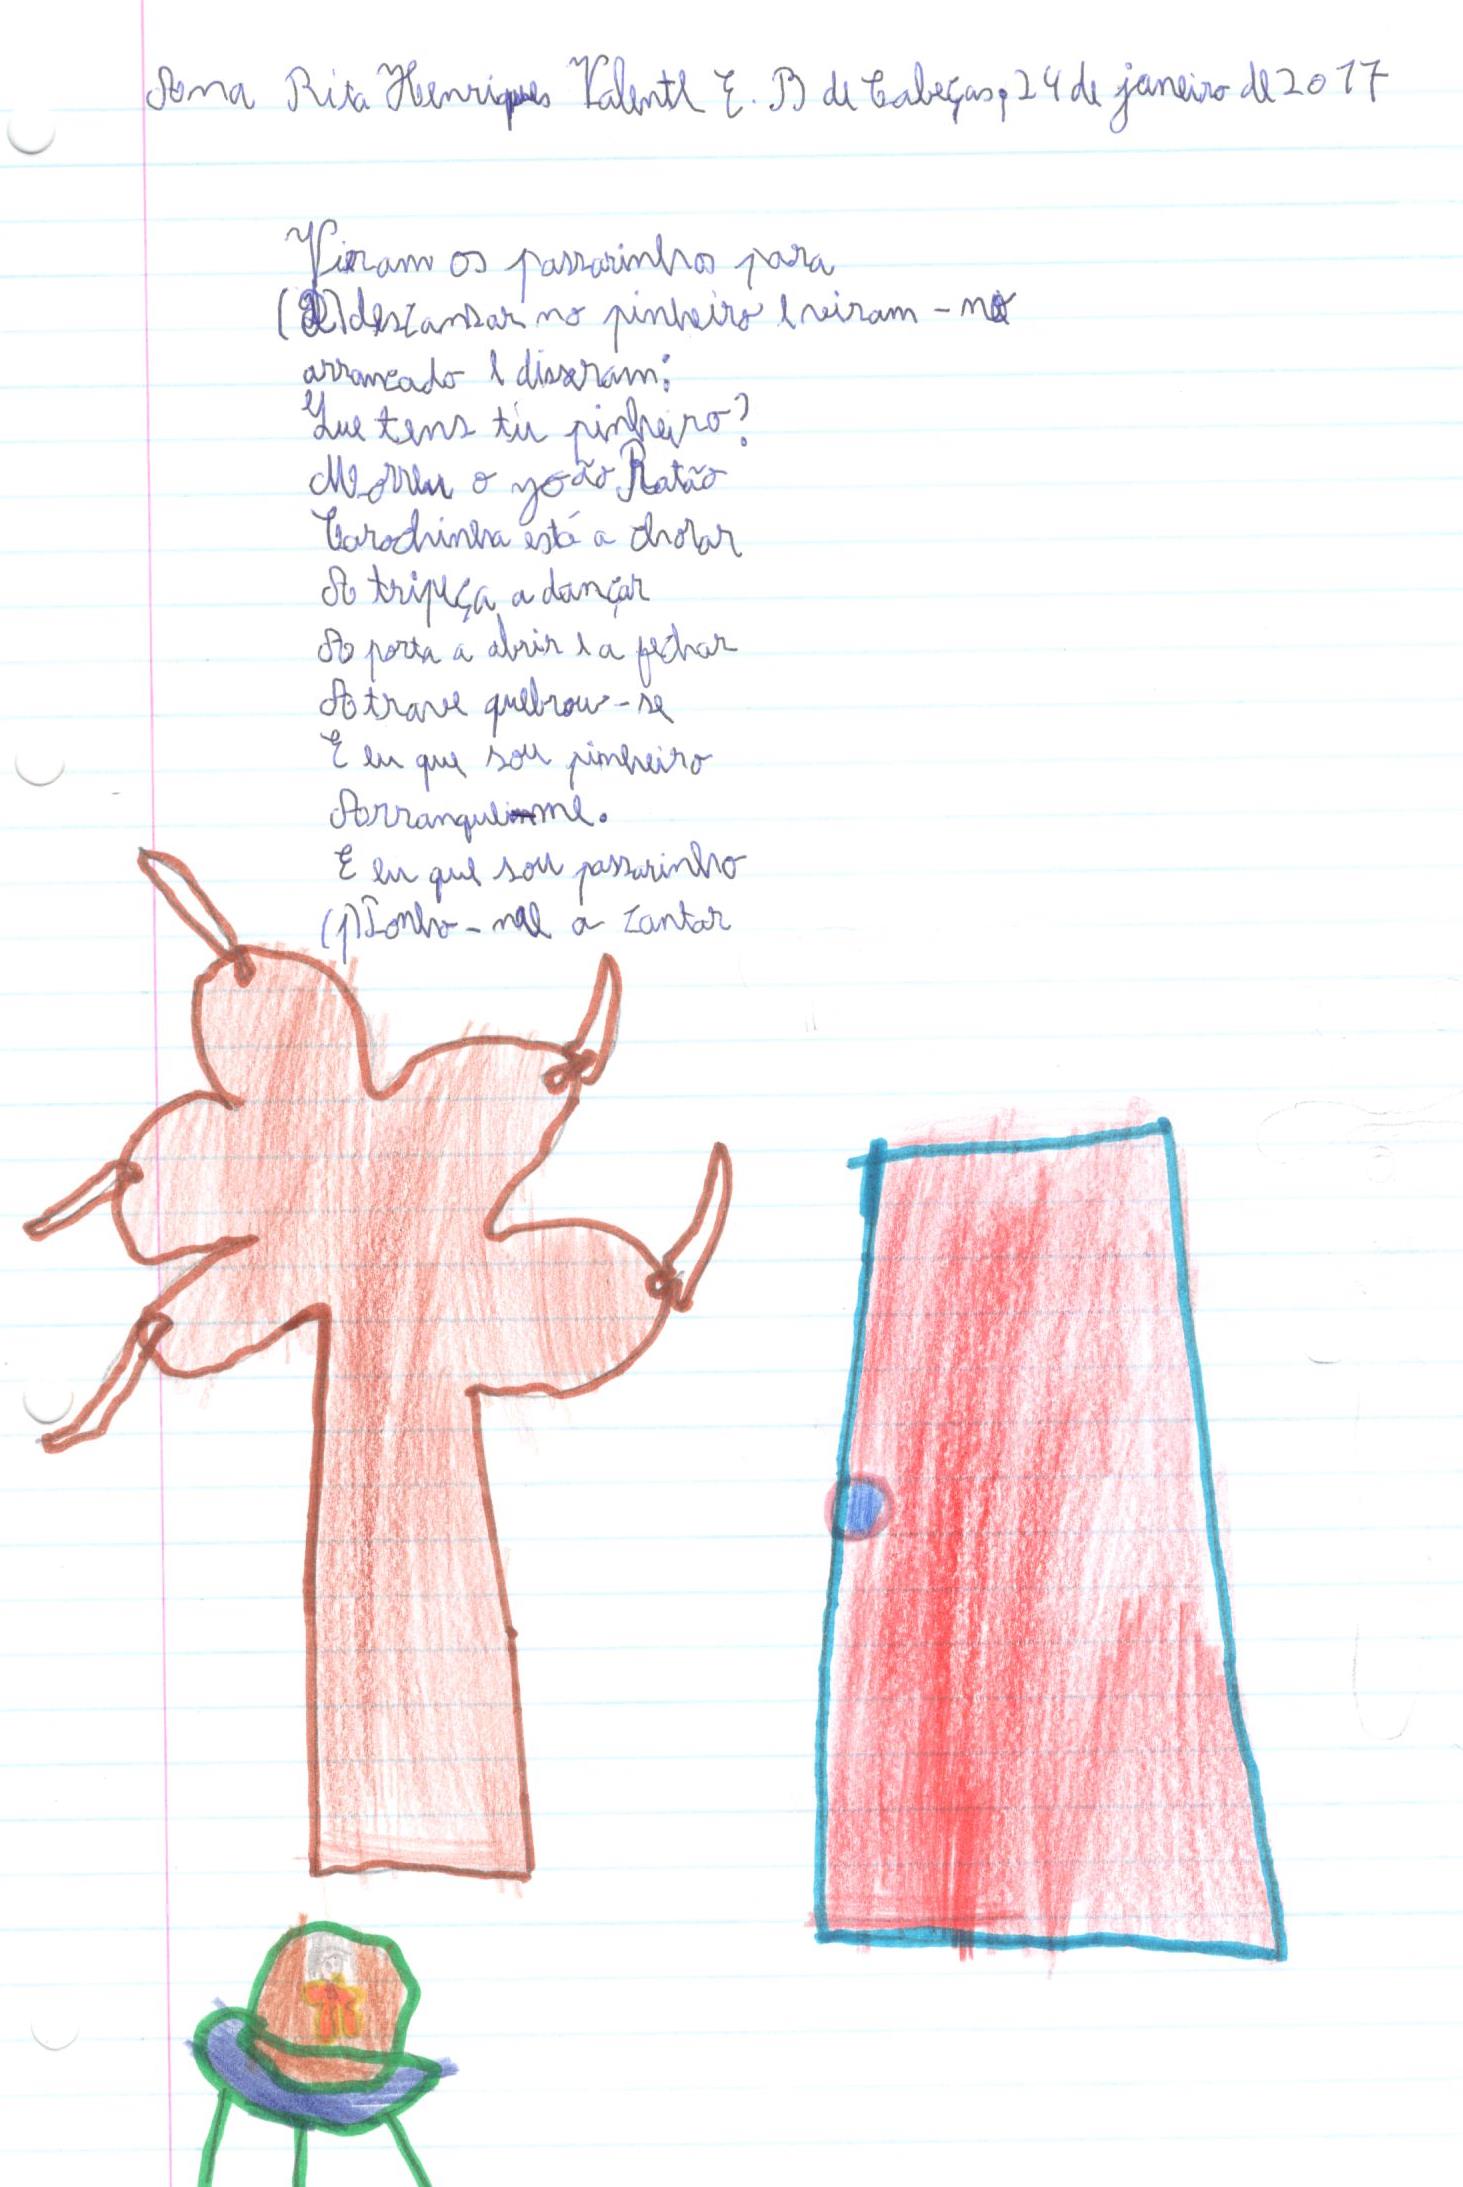 Ana Rita Henriques Valente E. B de Cabeças, 24 de janeiro de 2017
Viram os passarinhos para
descansar no pinheiro e viram-no
arrancado e disseram:
Que tens tu pinheiro?
Morreu o João Ratão
Carochinha está a chorar
A tripeça a dançar
A porta a abrir e a fechar
A trave quebrou-se
E eu que sou pinheiro
Arranquei-me.
E eu que sou passarinho
Ponho-me a cantar